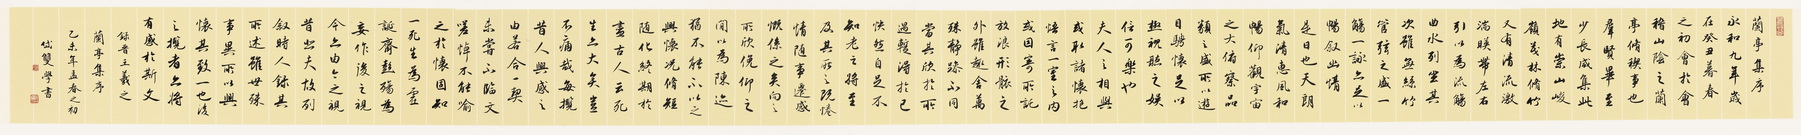 蘭亭集序
永和九年歲
在癸丑暮春
之初會於會
稽山陰之蘭
亭脩禊事也
羣賢畢至
少長咸集此
地有崇山峻
嶺茂林脩竹
又有清流激
湍暎帶左右
引以為流觴
曲水列坐其
次雖無絲竹
管弦之盛一
觴一詠亦足以
暢敘幽情
是日也天朗
氣清惠風和
暢仰觀宇宙
之大俯察品
類之盛所以遊
目騁懷足以
極視聽之娛
信可樂也
夫人之相與
或取諸懷抱
悟言一室之內
或因寄所託
放浪形骸之
外雖趣舍萬
殊靜躁不同
當其欣於所
遇暫得於己
快然自足不
知老之將至
及其所之既惓
情隨事遷感
慨係之矣向之
所欣俛仰之
間以為陳迹
猶不能不以之
興懷況脩短
隨化終期於
盡古人云死
生亦大矣豈
不痛哉每攬
昔人興感之
由若合一契
未嘗不臨文
嗟悼不能喻
之於懷固知
一死生為虛
誕齊彭殤為
妄作後之視
今亦由今之視
昔悲夫故列
敘時人錄其
所述雖世殊
事異所以興
懷其致一也後
之攬者亦將
有感於斯文
錄晉王羲之
蘭亭集序
乙未年孟春之初
雙學書